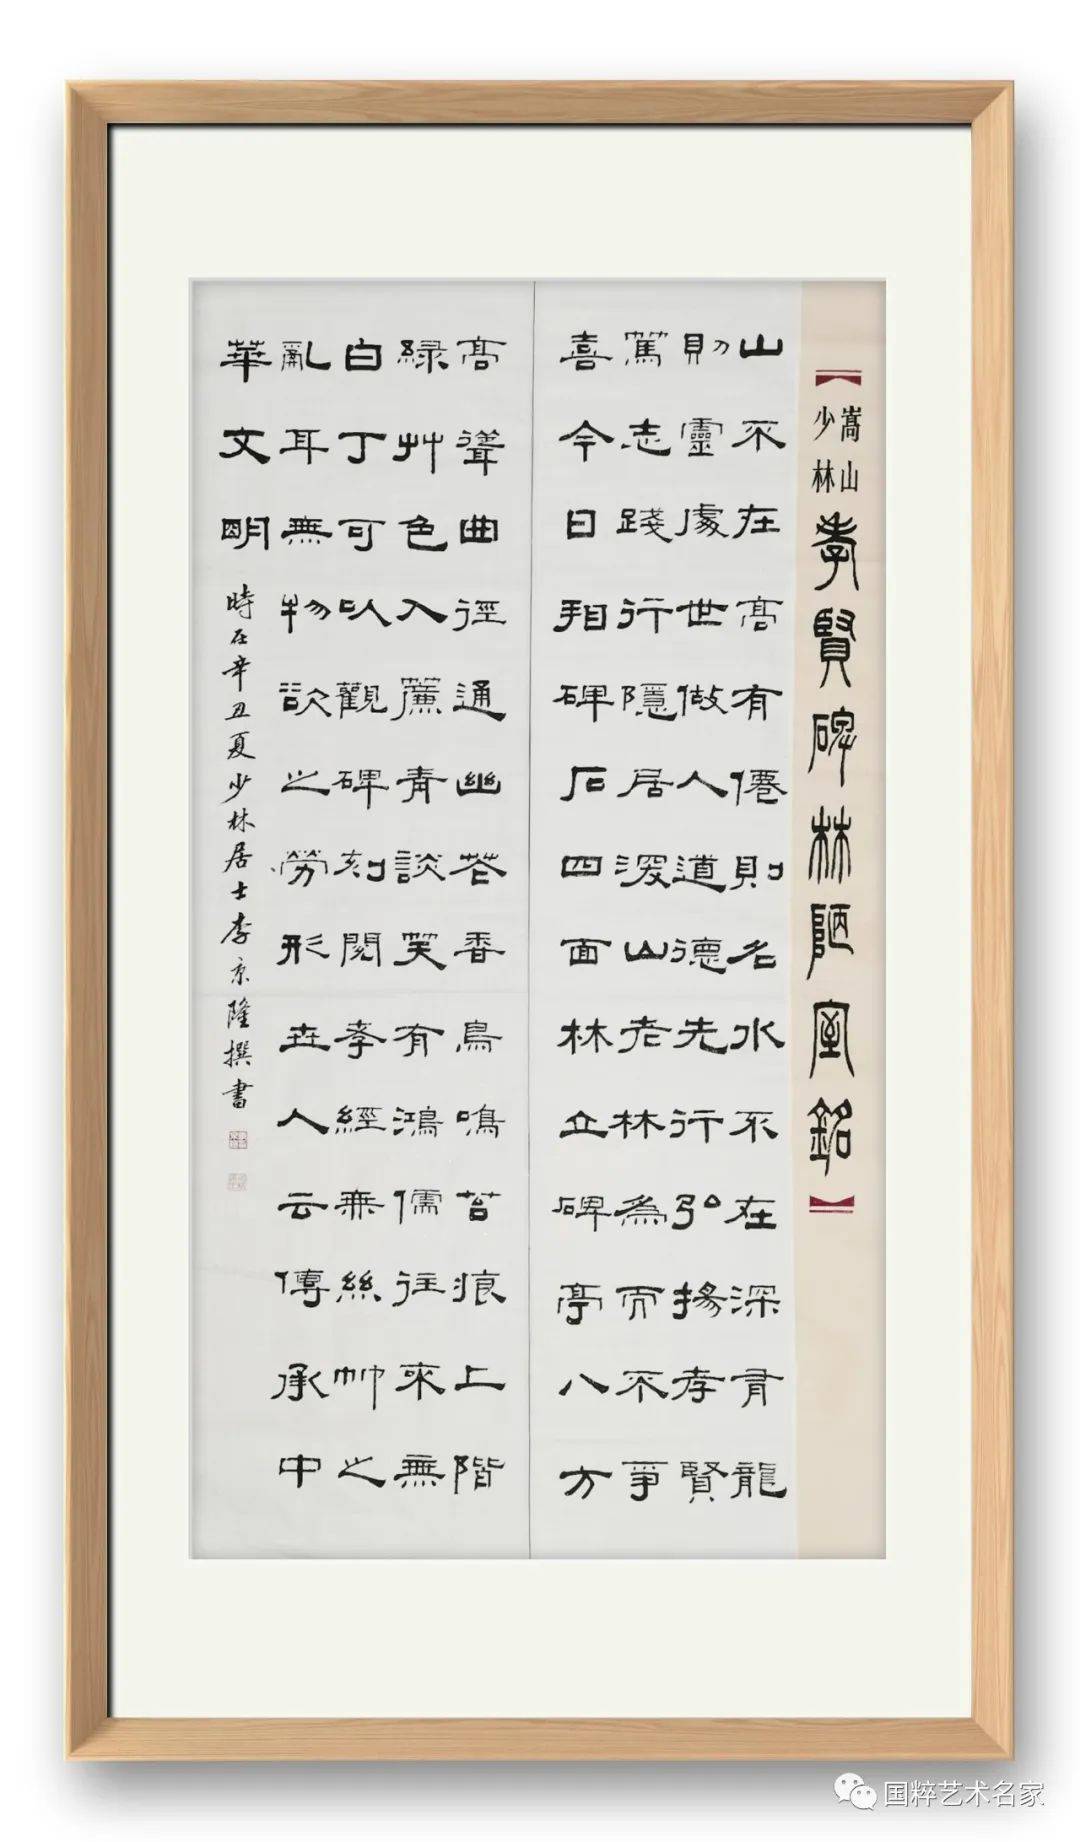 嵩山少林
孝賢碑林陋室銘
山不在高有僊則名水不在深有龍
則靈處世做人道德先行弘揚孝賢
篤志踐行隱居深山老林為而不爭
喜今日相碑石四面林立碑亭八方
高聳曲徑通幽花香鳥鳴苔痕上階
緑艸色入簾青談笑有鴻儒往來無
白丁可以觀碑刻閱孝經無絲竹之
亂耳無物欲之勞形世人云傳承中
華文明
時在辛丑夏少林居士李京隆撰書
国粹艺术名家